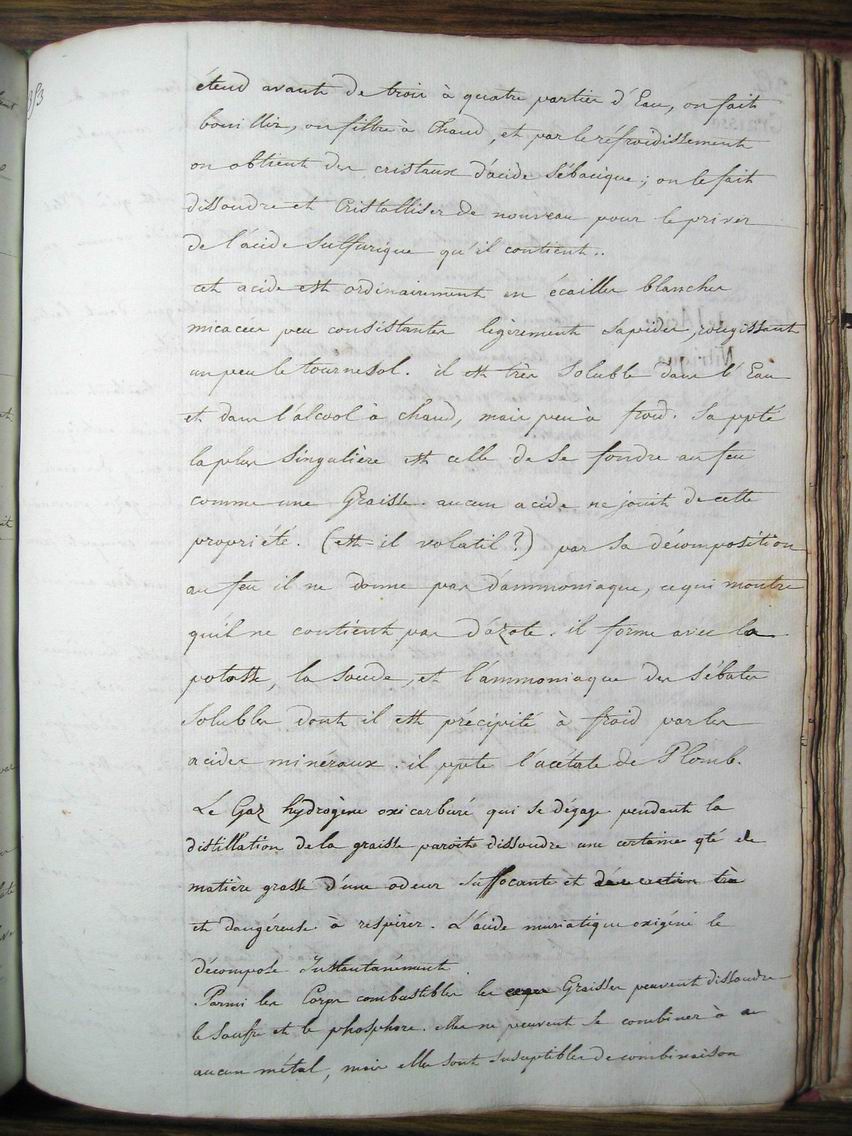 353
étend avant de trois à quatre parties d'Eau, on fait
bouillir, on filtre à Chaud, et par le réfroidissement
on obtient des cristaux d'acide Sébacique ; on le fait
dissoudre et Cristalliser de nouveau pour le priver
de l'acide Sulfurique qu'il contient..
cet acide est ordinairement en écailles blanches
micacées peu consistantes légèrement sapides, rougissant
un peu le tournesol. il est très Soluble dans l'Eau
et dans l'álcool à chaud, mais peu à froid. Sa ppté
la plus Singulière est celle de Se fondre au feu
comme une Graisse. aucun acide ne jouit de cette
propriété. (est-il volatil ?) par Sa décomposition
au feu il ne donne pas d'ammoniaque, ce qui montre
qu'il ne contient pas d'ázote. il forme avec la
potasse, la Soude, et l'ammoniaque des Sébates
Solubles dont il est précipité à froid par les
acides minéraux. il ppte l'acétate de Plomb.
Le Gaz hydrogène oxicarburé qui se dégage pendant la
distillation de la graisse paroit dissoudre une certaine qté de
matière grasse d'une odeur Suffocante et très
et dangéreuse à respirer. L'acide muriatique oxigéné le
décompose Instantanément.
Parmi les Corps combustibles les Graisses peuvent dissoudre
le Soufre et le phosphore. elles ne peuvent se combiner à
aucun métal, mais elles sont susceptibles de combinaison